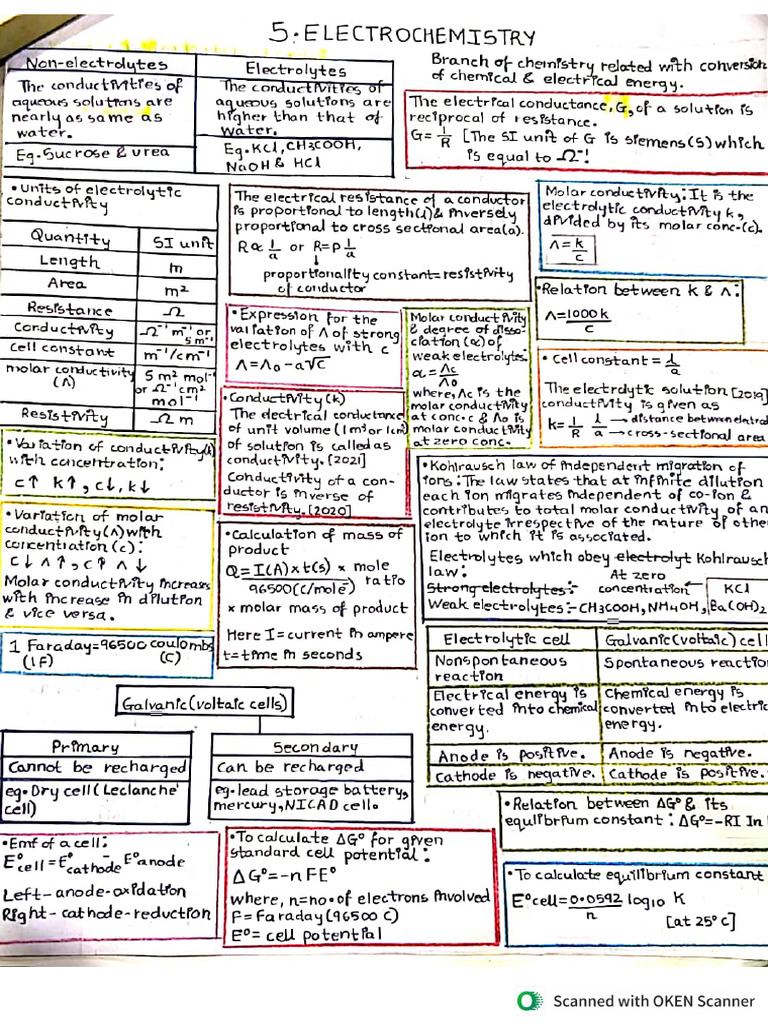 5. ELECTROCHEMISTRY
Non-electrolytes
The conductivities of
aqueous solutions are
nearly as same as
water.
Eg. Sucrose & urea
Electrolytes
The conductivities of
aqueous solutions are
higher than that of
water.
Eg. KCl, CH3COOH,
NaOH & HCl
Branch of chemistry related with conversion
of chemical & electrical energy.
The electrical conductance, G, of a solution is
reciprocal of resistance.
G = 1/R [The SI unit of G is siemens(S) which
is equal to Ω⁻¹
• Units of electrolytic
conductivity
Quantity SI unit
Length m
Area m²
Resistance Ω
Conductivity Ω⁻¹ m⁻¹ or S m⁻¹
Cell constant m⁻¹/cm⁻¹
molar conductivity (Λ) S m² mol⁻¹ or Ω⁻¹ cm² mol⁻¹
Resistivity Ω m
The electrical resistance of a conductor
is proportional to length(l) & inversely
proportional to cross sectional area(a).
R ∝ l/a or R = ρ l/a
↓
proportionality constant = resistivity
of conductor
Molar conductivity: It is the
electrolytic conductivity k,
divided by its molar conc-(c).
Λ = k/c
• Relation between k & Λ:
Λ = 1000 k/c
• Expression for the
variation of Λ of strong
electrolytes with c
Λ = Λ₀ - a√c
Molar conductivity
& degree of disso-
ciation (α) of
weak electrolytes.
α = Λc/Λ₀
where, Λc is the
molar conductivity
at conc. c & Λ₀ is
molar conductivity
at zero conc.
• Cell constant = l/a
The electrolytic solution [2019]
conductivity is given as
k = 1/R l/a → distance between elctrod
→ cross-sectional area
• Conductivity (k)
The electrical conductance
of unit volume (1 m³ or 1 cm³)
of solution is called as
conductivity. [2021]
Conductivity of a con-
ductor is inverse of
resistivity. [2020]
• Variation of conductivity(k)
with concentration:
c↑ k↑, c↓, k↓
• Variation of molar
conductivity (Λ) with
concentration (c):
c↓ Λ↑, c↑ Λ↓
Molar conductivity increases
with increase in dilution
& vice versa.
1 Faraday = 96500 coulombs
(1F) (C)
• Calculation of mass of
product
Q = I(A) × t(s) / 96500 (C/mole) × mole ratio
× molar mass of product
Here I = current in ampere
t = time in seconds
• Kohlrausch law of independent migration of
ions: The law states that at infinite dilution
each ion migrates independent of co-ion &
contributes to total molar conductivity of an
electrolyte irrespective of the nature of other
ion to which it is associated.
Electrolytes which obey electrolyt Kohlrausch
law:
Strong electrolytes:- At zero concentration ← KCl
Weak electrolytes:- CH3COOH, NH4OH, Ba(OH)2
Electrolytic cell Galvanic (voltaic) cell
Nonspontaneous reaction Spontaneous reaction
Electrical energy is converted into chemical energy. Chemical energy is converted into electric energy.
Anode is positive. Anode is negative.
Cathode is negative. Cathode is positive.
Galvanic (voltaic cells)
Primary
Cannot be recharged
eg. Dry cell (Leclanche' cell)
Secondary
Can be recharged
eg. lead storage battery,
mercury, NICAD cell.
• Emf of a cell:
E°cell = E°cathode - E°anode
Left - anode - oxidation
Right - cathode - reduction
• To calculate ΔG° for given
standard cell potential:
ΔG° = -n FE°
where, n = no. of electrons involved
F = Faraday (96500 C)
E° = cell potential
• Relation between ΔG° & its
equilibrium constant: ΔG° = -RI In
• To calculate equilibrium constant
E°cell = 0.0592/n log10 K
[at 25°C]
Scanned with OKEN Scanner